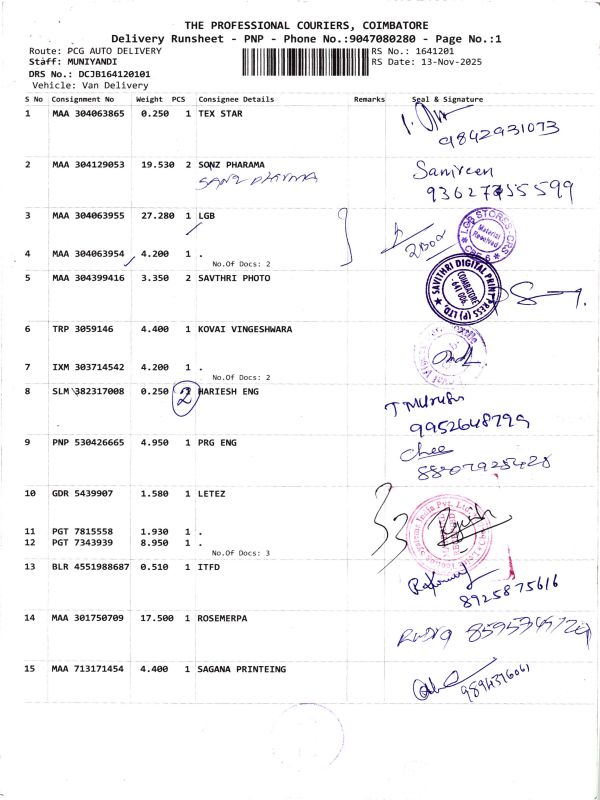 THE PROFESSIONAL COURIERS, COIMBATORE
Delivery Runsheet - PNP - Phone No.:9047080280 - Page No.:1
Route: PCG AUTO DELIVERY
RS No.: 1641201
Staff: MUNIYANDI
RS Date: 13-Nov-2025
DRS No.: DCJB164120101
Vehicle: Van Delivery
S No Consignment No Weight PCS Consignee Details Remarks Seal & Signature
1 MAA 304063865 0.250 1 TEX STAR
9842931073
2 MAA 304129053 19.530 2 SONZ PHARAMA
SANZ PHARMA
3 MAA 304063955 27.280 1 LGB
LGB STORES
Material
Received
4 MAA 304063954 4.200 1 .
No.Of Docs: 2
5 MAA 304399416 3.350 2 SAVTHRI PHOTO
SAVITHRI DIGITAL PRINT PRESS (P) LTD.
COIMBATORE
6 TRP 3059146 4.400 1 KOVAI VINGESHWARA
7 IXM 303714542 4.200 1 .
No.Of Docs: 2
8 SLM 382317008 0.250 2 HARIESH ENG
9952648799
9 PNP 530426665 4.950 1 PRG ENG
10 GDR 5439907 1.580 1 LETEZ
11 PGT 7815558 1.930 1 .
12 PGT 7343939 8.950 1 .
No.Of Docs: 3
13 BLR 4551988687 0.510 1 ITFD
8925875616
14 MAA 301750709 17.500 1 ROSEMERPA
15 MAA 713171454 4.400 1 SAGANA PRINTEING